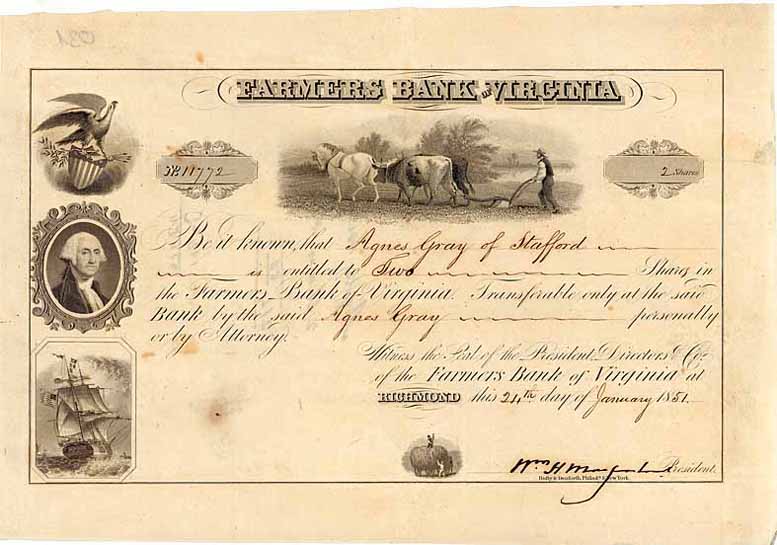 FARMERS BANK OF VIRGINIA
No. 11772
2 Shares
Be it known, that Agnes Gray of Stafford
is entitled to Two Shares in
the Farmers Bank of Virginia. Transferable only at the said
Bank by the said Agnes Gray personally
or by Attorney.
Witness the Seal of the President, Directors & Co.
of the Farmers Bank of Virginia at
RICHMOND this 24th day of January 1851.
Wm H President.
Danforth, Philada. New York.